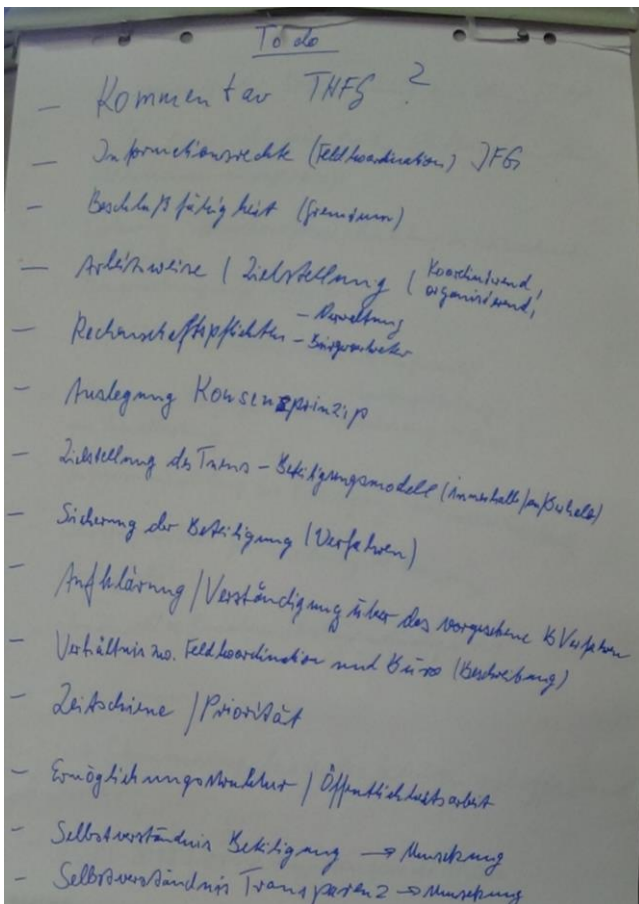 To do
– Kommentar THFG ?
– Informationsrechte (Feldkoordination) IFG
– Beschlußfähigkeit (Gremium)
– Arbeitsweise / Zielstellung ( Koordinierend,
organisierend,
– Rechenschaftspflichten – Verwaltung
– Bürgervertreter
– Auslegung Konsensprinzip
– Zielstellung des – Beteiligungsmodell (innerhalb /
– Sicherung der Beteiligung (Verfahren)
– Aufklärung / Verständigung über das vorgesehene B Verfahren
– Verhältnis zw. Feldkoordination und Büro (Beschreibung)
– Zeitschiene / Priorität
– Ermöglichungsstruktur / Öffentlichkeitsarbeit
– Selbstverständnis Beteiligung → Umsetzung
– Selbstverständnis Transparenz → Umsetzung